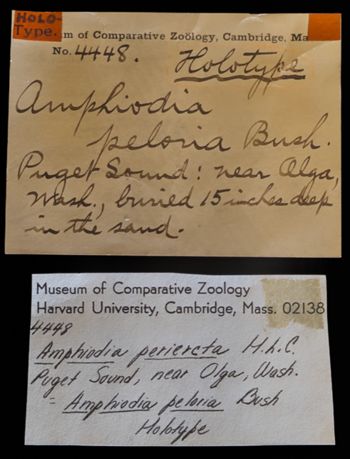 HOLO-
Type.
um of Comparative Zoölogy, Cambridge, Ma
No. 4448.
Holotype
Amphiodia
peloria Bush.
Puget Sound: near Olga,
Wash., buried 15 inches deep
in the sand.
Museum of Comparative Zoology
Harvard University, Cambridge, Mass. 02138
4448
Amphiodia periercta H.L.C.
Puget Sound, near Olga, Wash.
= Amphiodia peloria Bush
Holotype